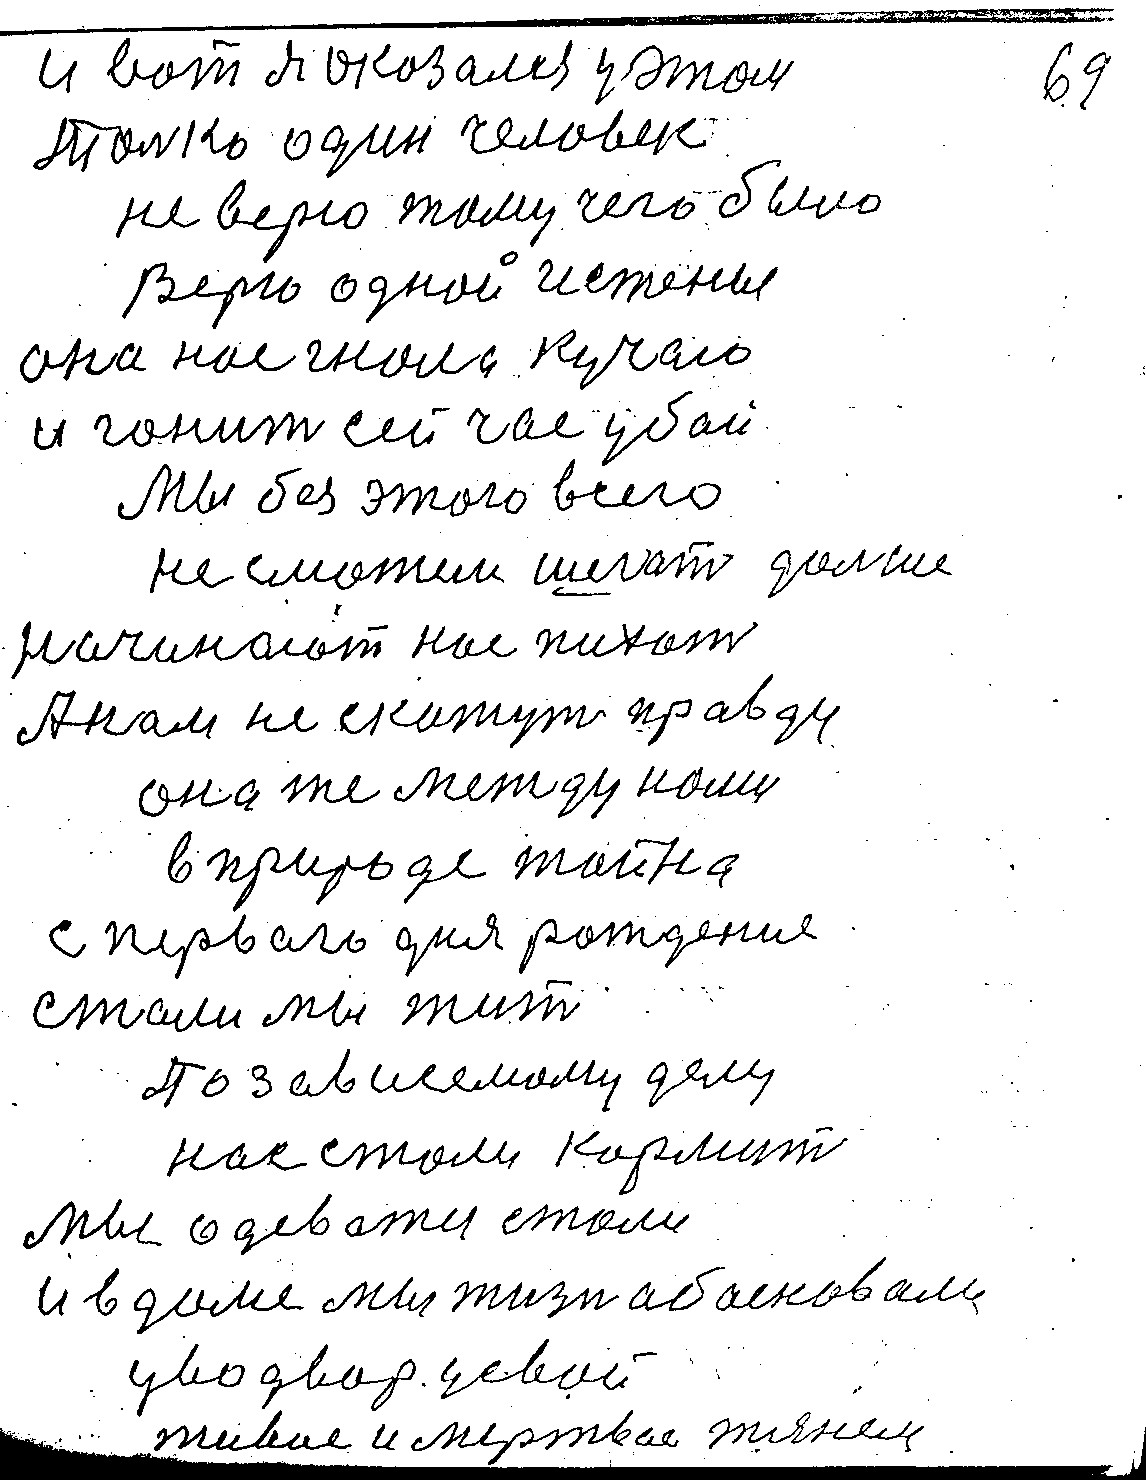 и вот я оказался у этом 69
только один человек
не верю тому чего было
верю одной истены
она нас гнола кучаю
и гонит сей час убой
Мы без этого всего
не сможем шегат далше
начинают нас пихат
А нам не скажут правду
она же между нами
в природе тайна
с первого дня рождения
стали мы жит
по зависемому делу
нас стали кормит
мы одевати стали
и в доме мы жизн абосновали
уво двор усвой
живое и мертвое тянем